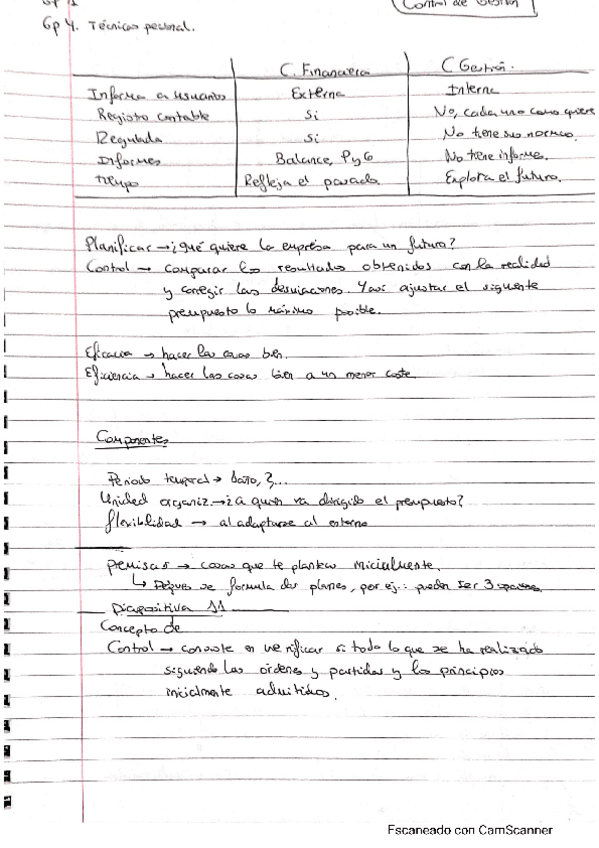 Control de Gestión
Gp 4. Técnicas personal.
C. Financiera C Gestión.
Informa a usuarios Externa Interna
Registro contable Si No, cada uno como quiere
Regulada Si No tiene sus normas.
Informes Balance, PyG No tiene informes.
tiempo Refleja el pasado Explota el futuro.
Planificar → ¿Qué quiere la empresa para un futuro?
Control → comparar los resultados obtenidos con la realidad
y corregir las desviaciones. Y así ajustar el siguiente
presupuesto lo máximo posible.
Eficacia → hacer las cosas bien.
Eficiencia → hacer las cosas bien a un menor coste
Componentes
Periodo temporal →
Unidad organiz. → ¿a quien va dirigido el presupuesto?
flexibilidad → al adaptarse al entorno
premisas → cosas que te planteas inicialmente.
↳ se formula dos planes, por ej.: pueden ser 3
Diapositiva 11
Concepto de
Control → consiste en verificar si todo lo que se ha realizado
siguiendo las ordenes y partidas y los principios
inicialmente admitidos.
Escaneado con CamScanner